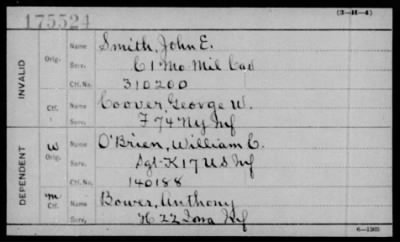 175524
(3-H-4)
INVALID
Orig.
Name Smith, John E.
Serv. C 1 Mo Mil Cav
Ctf. No. 310200
Ctf.
Name Coover, George W.
Serv. F 74 NY Inf
DEPENDENT
W
Orig.
Name O'Brien, William E.
Serv. Sgt. K 17 US Inf
Ctf. No. 140188
m
Ctf.
Name Bower, Anthony
Serv. H 22 Iowa Inf